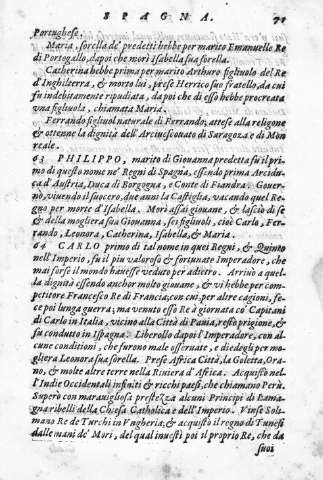 SPAGNA. 71
Portughese.
Maria, sorella de' predetti hebbe per marito Emanuello Re
di Portogallo, dapoi che morì Isabella sua sorella.
Catherina hebbe prima per marito Arthuro figliuolo del Re
d'Inghilterra, & morto lui, prese Herrico suo fratello, da cui
fu indebitamente ripudiata, da poi che di esso hebbe procreata
vna figliuola, chiamata Maria.
Ferrando figliuol naturale di Ferrando, attese alla religione
& ottenne la dignità dell'Arciuescouato di Saragoza & di Mon
reale.
63 PHILIPPO, marito di Giouanna predetta fu il pri
mo di questo nome ne' Regni di Spagna, essendo prima Arcidu
ca d'Austria, Duca di Borgogna, e Conte di Fiandra. Gouer
nò, viuendo il suocero, due anni la Castiglia, vacando quel Re
gno per morte d'Isabella. Morì assai giouane, & lasciò di se
& della mogliera sua Giouanna, sei figliuoli, cioè Carlo, Fer
rando, Leonora, Catherina, Isabella, & Maria.
64 CARLO primo di tal nome in quei Regni, & Quinto
nell'Imperio, fu il piu valoroso & fortunato Imperadore, che
mai forse il mondo hauesse veduto per adietro. Arriuò a quel-
la dignità essendo anchor molto giouane, & vi hebbe per com-
petitore Francesco Re di Francia, con cui, per altre cagioni, fe-
ce poi lunga guerra, ma venuto esso Re à giornata co' Capitani
di Carlo in Italia, vicino alla Città di Pauia, restò prigione, &
fu condutto in Ispagna. Liberollo dapoi l'Imperadore, con al-
cune conditioni, che furono male osseruate, e diedegli per mo-
gliera Leonora sua sorella. Prese Africa Città, la Goletta, Ora-
no, & molte altre terre nella Riuiera d'Africa. Acquistò nel-
l'Indie Occidentali infiniti & ricchi paesi, che chiamano Perù.
Superò con marauigliosa prestezza alcuni Principi di Lama-
gna ribelli della Chiesa Catholica e dell'Imperio. Vinse Soli-
mano Re de Turchi in Vngheria, & acquistò il regno di Tunesi
dalle mani de' Mori, del qual inuestì poi il proprio Re, che da
suoi